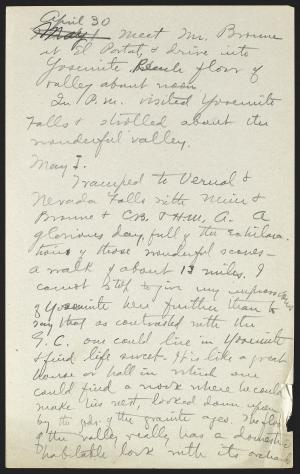 April 30
May 1 Meet Mr. Browne
at El Portal, & drive into
Yosemite. Reach floor of
valley about noon
In P.M. visited Yosemite
Falls & strolled about the
wonderful valley.
May I.
Tramped to Vernal &
Nevada Falls with Muir &
Browne & C.B. & H.M. A. A
glorious day, full of the exhilara-
tions of those wonderful scenes -
a walk of about 13 miles. I
cannot stop to give my impressions
of Yosemite here further than to
say that as contrasted with the
G.C. one could live in Yosemite
& find life sweet. It is like a great
house or hall in which one
could find a nook where he could
make his nest, looked down upon
by the gods of the granite ages. The floor
of the valley really has a domestic
habitable look with its orchards